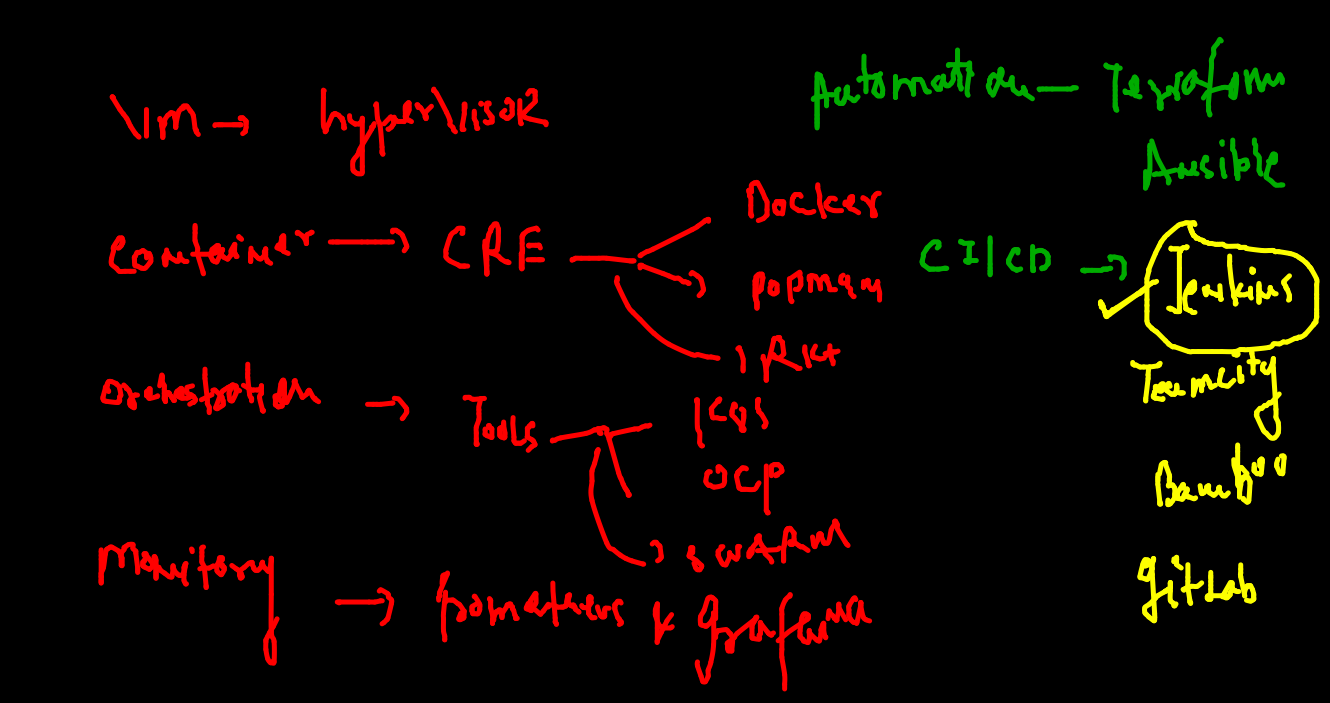 VM → hypervisor
Container → CRE
Docker
popman
Rkt
Orchestration → Tools
K8s
OCP
SWARM
→ & grafana
Automation — Terraform
Ansible
CI/CD → Jenkins
Teamcity
Bamboo
gitLab